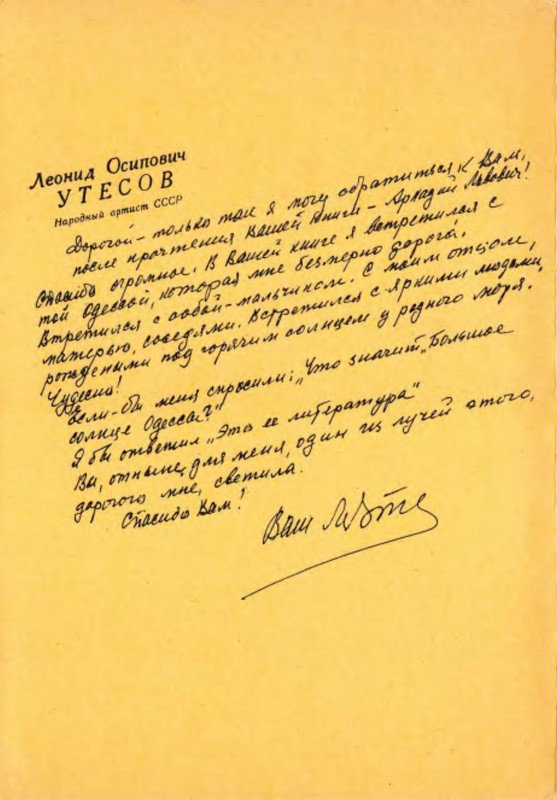 Леонид Осипович
УТЕСОВ
Народный артист СССР
Дорогой – только так я могу обратиться к Вам,
после прочтения Вашей книги – Аркадий Львович!
Спасибо огромное. В Вашей книге я встретился с
той Одессой, которая мне безмерно дорога.
Втретился с собой – мальчиком. С моим отцом,
матерью, соседями. Встретился с яркими людьми,
рожденными под горячим солнцем у родного моря.
Чудесно!
Если-бы меня спросили: „Что значит „Большое
солнце Одессы?"
Я бы ответил „Это ее литература"
Вы, отныне, для меня, один из лучей этого,
дорогого мне, светила.
Спасибо Вам!
Ваш